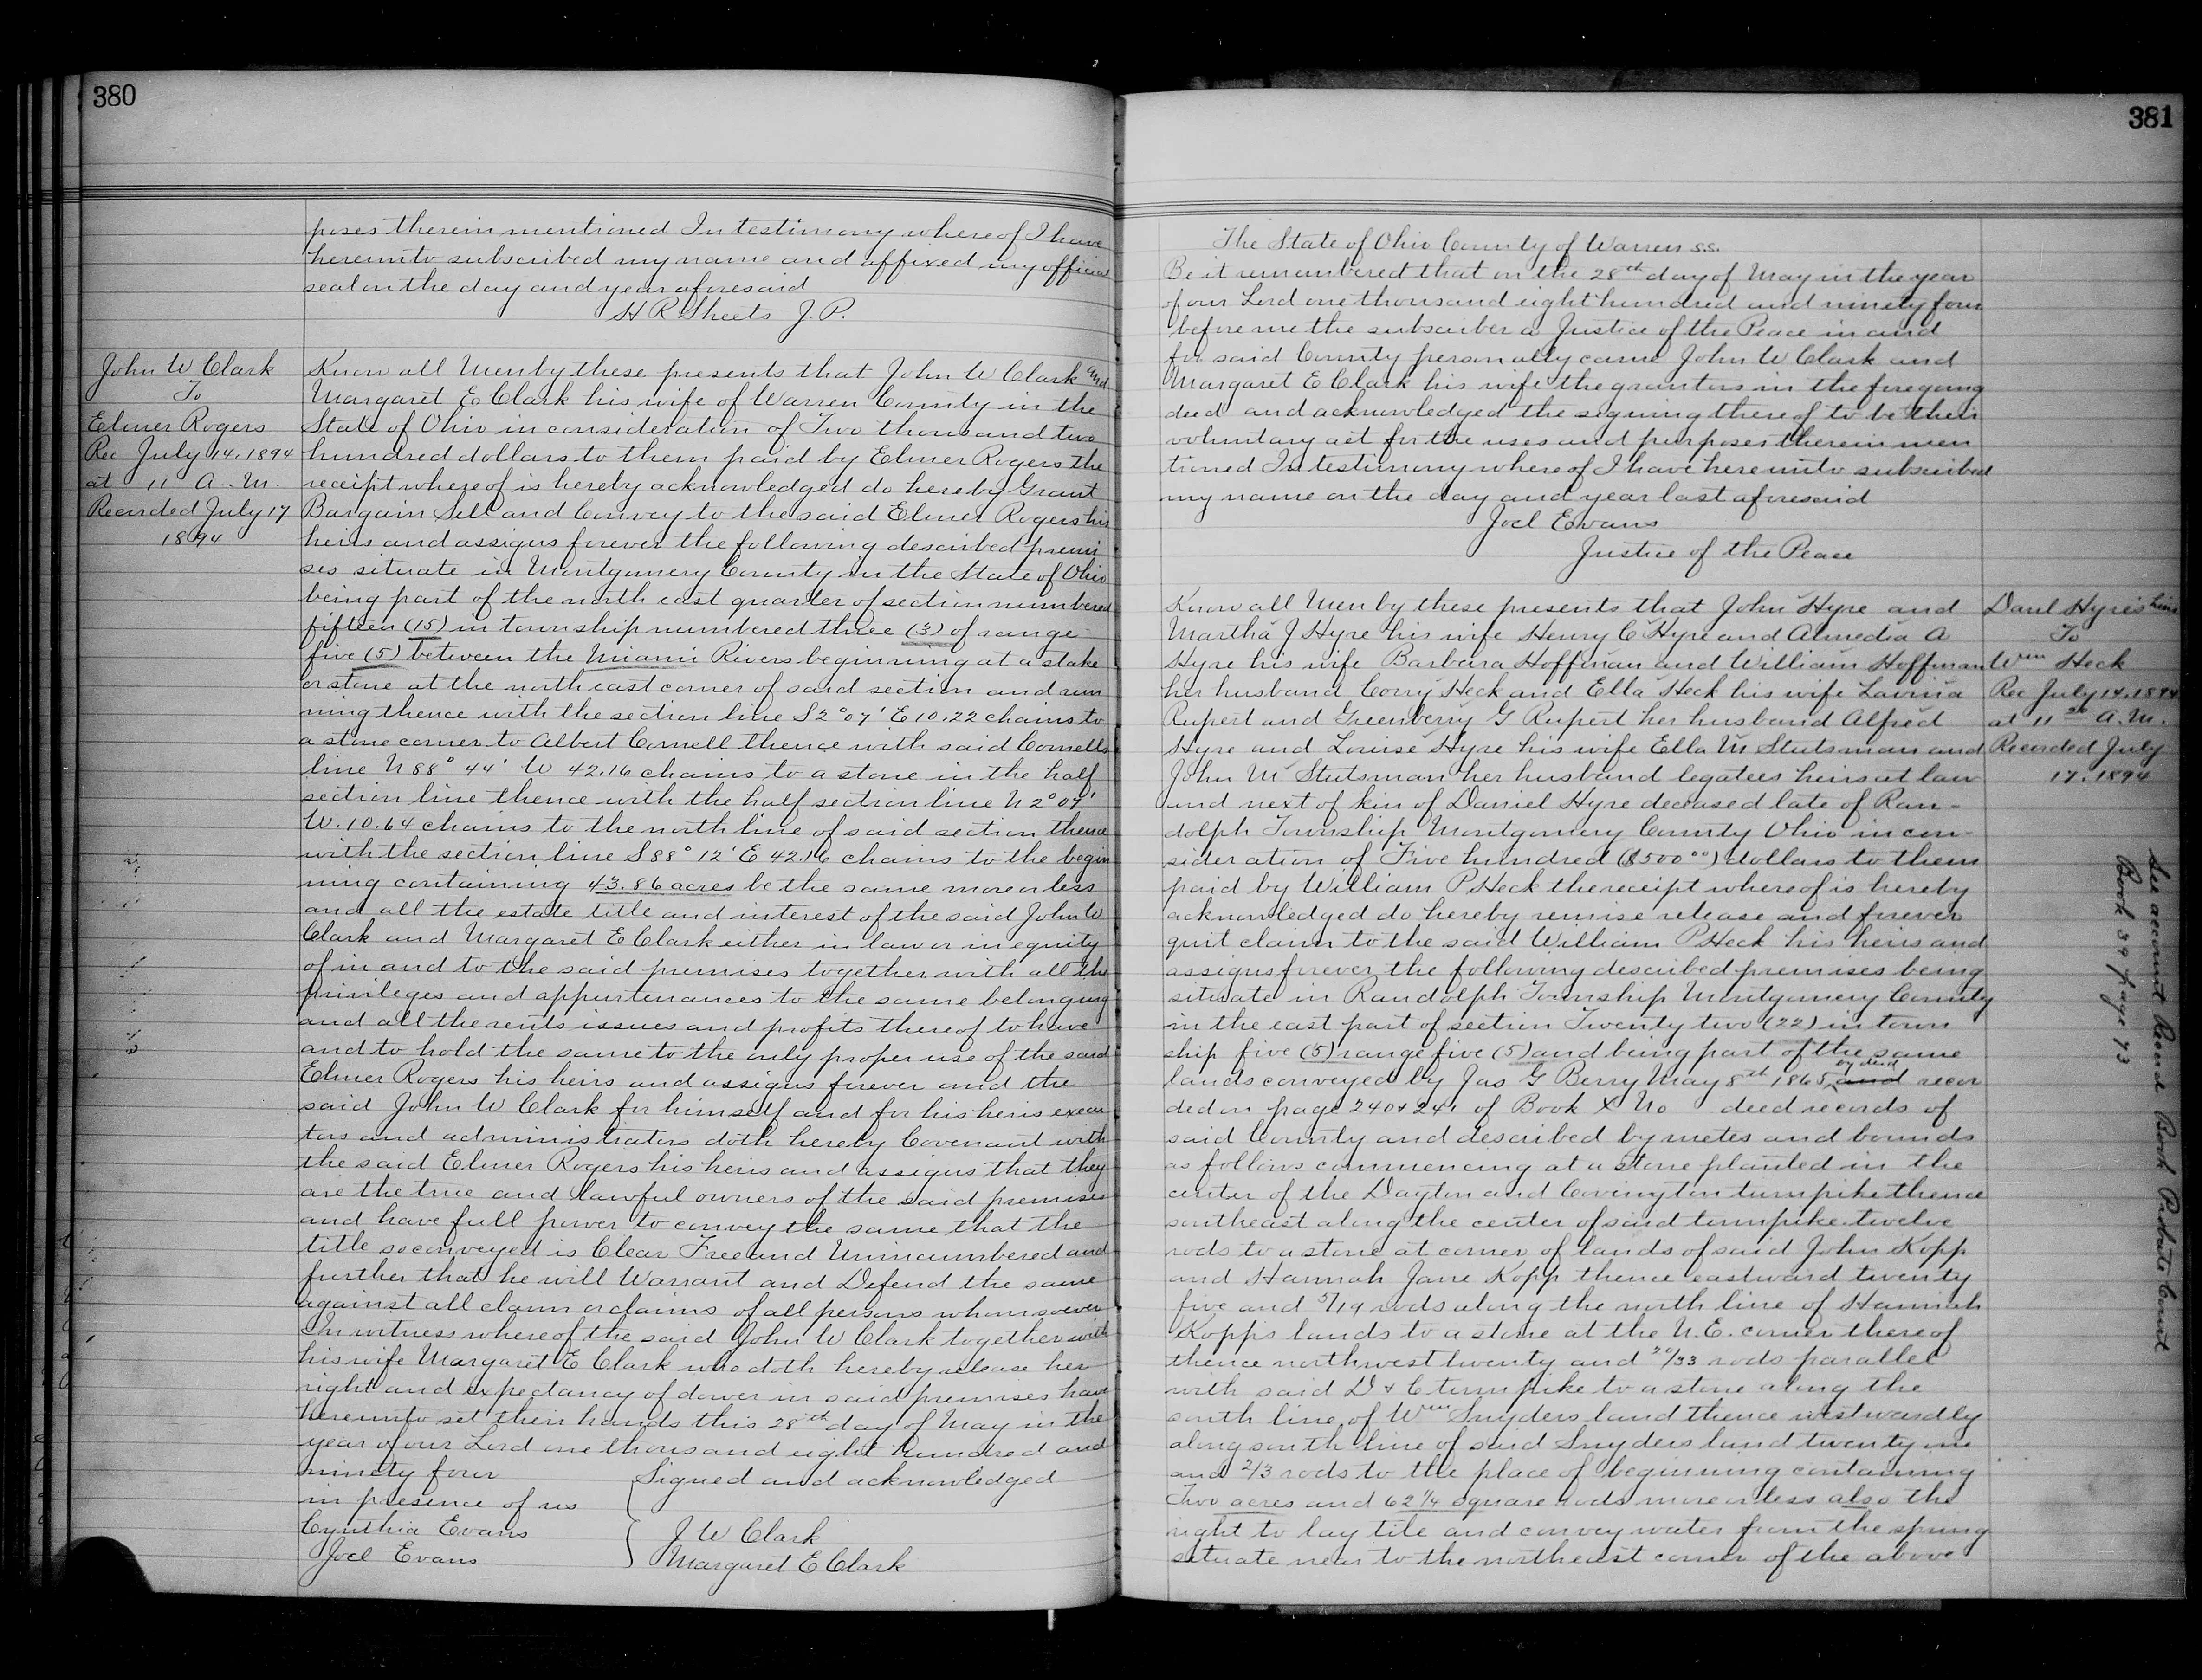 380
poses therein mentioned In testimony whereof I have
hereunto subscribed my name and affixed my official
seal on the day and year aforesaid
H R Sheets J.P.
John W Clark
To
Elmer Rogers
Rec July 14. 1894
at 11 A.M.
Recorded July 17
1894
Know all Men by these presents that John W Clark and
Margaret E Clark his wife of Warren County in the
State of Ohio in consideration of Two thousand two
hundred dollars to them paid by Elmer Rogers the
receipt whereof is hereby acknowledged do hereby Grant
Bargain Sell and Convey to the said Elmer Rogers his
heirs and assigns forever the following described premi
ses situate in Montgomery County in the State of Ohio
being part of the north east quarter of section numbered
fifteen (15) in township numbered three (3) of range
five (5) between the Miami Rivers beginning at a stake
or stone at the north east corner of said section and run
ning thence with the section line S 2° 07' E 10.22 chains to
a stone corner to Albert Cornell thence with said Cornells
line N 88° 44' W 42.16 chains to a stone in the half
section line thence with the half section line N 2° 07'
W. 10.64 chains to the north line of said section thence
with the section line S 88° 12' E 42.16 chains to the begin
ning containing 43.86 acres be the same more or less
and all the estate title and interest of the said John W
Clark and Margaret E Clark either in law or in equity
of in and to the said premises together with all the
privileges and appurtenances to the same belonging
and all the rents issues and profits thereof to have
and to hold the same to the only proper use of the said
Elmer Rogers his heirs and assigns forever and the
said John W Clark for himself and for his heirs execu
tors and administrators doth hereby Covenant with
the said Elmer Rogers his heirs and assigns that they
are the true and lawful owners of the said premises
and have full power to convey the same that the
title so conveyed is Clear Free and Unincumbered and
further that he will Warrant and Defend the same
against all claim or claims of all persons whomsoever
In witness whereof the said John W Clark together with
his wife Margaret E Clark who doth hereby release her
right and expectancy of dower in said premises have
hereunto set their hands this 28th day of May in the
year of our Lord one thousand eight hundred and
ninety four Signed and acknowledged
in presence of us
Cynthia Evans J W Clark
Joel Evans Margaret E Clark
381
The State of Ohio County of Warren s.s.
Be it remembered that on the 28th day of May in the year
of our Lord one thousand eight hundred and ninety four
before me the subscriber a Justice of the Peace in and
for said County personally came John W Clark and
Margaret E Clark his wife the grantors in the foregoing
deed and acknowledged the signing thereof to be their
voluntary act for the uses and purposes therein men
tioned In testimony whereof I have hereunto subscribed
my name on the day and year last aforesaid
Joel Evans
Justice of the Peace
Danl Hyres heirs
To
Wm Heck
Rec July 14. 1894
at 11 A.M.
Recorded July
17. 1894
Know all Men by these presents that John Hyre and
Martha J Hyre his wife Henry C Hyre and Almedia A
Hyre his wife Barbara Hoffman and William Hoffman
her husband Corry Heck and Ella Heck his wife Lavina
Rupert and Greenberry G Rupert her husband Alfred
Hyre and Louise Hyre his wife Ella M Stutsman and
John M Stutsman her husband legatees heirs at law
and next of kin of Daniel Hyre deceased late of Ran-
dolph Township Montgomery County Ohio in con-
sideration of Five hundred ($500 00) dollars to them
paid by William P Heck the receipt whereof is hereby
acknowledged do hereby remise release and forever
quit claim to the said William P Heck his heirs and
assigns forever the following described premises being
situate in Randolph Township Montgomery County
in the east part of section Twenty two (22) in town
ship five (5) range five (5) and being part of the same
lands conveyed by Jas G Berry May 8th 1865 by deed and recor
ded on page 240 & 241 of Book X No deed records of
said County and described by metes and bounds
as follows commencing at a stone planted in the
center of the Dayton and Covington turnpike thence
southeast along the center of said turnpike twelve
rods to a stone at corner of lands of said John Kopp
and Hannah Jane Kopp thence eastward twenty
five and 5/19 rods along the north line of Hannah
Kopps lands to a stone at the N.E. corner thereof
thence northwest twenty and 20/33 rods parallel
with said D & C turnpike to a stone along the
south line of Wm Snyders land thence westwardly
along south line of said Snyders land twenty one
and 2/3 rods to the place of beginning containing
Two acres and 62 1/4 square rods more or less also the
right to lay tile and convey water from the spring
situate near to the northeast corner of the above
See account Record Book Probate Court
Book 39 page 73